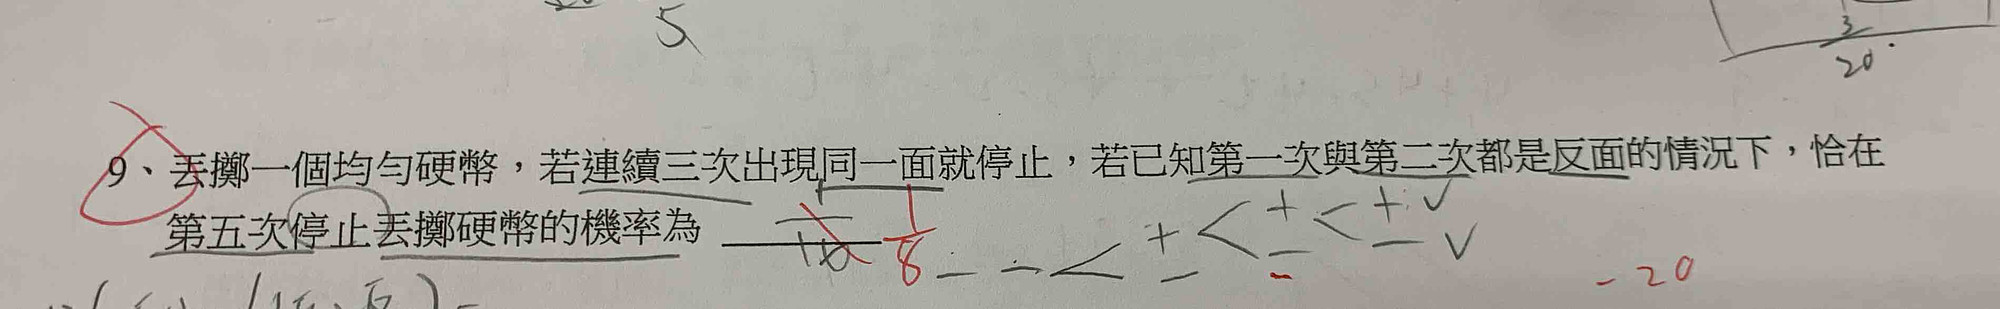 5
3
20
9、丟擲一個均勻硬幣，若連續三次出現同一面就停止，若已知第一次與第二次都是反面的情況下，恰在
第五次停止丟擲硬幣的機率為
1
8
- - < + - < + - < + ✓ - ✓
-20